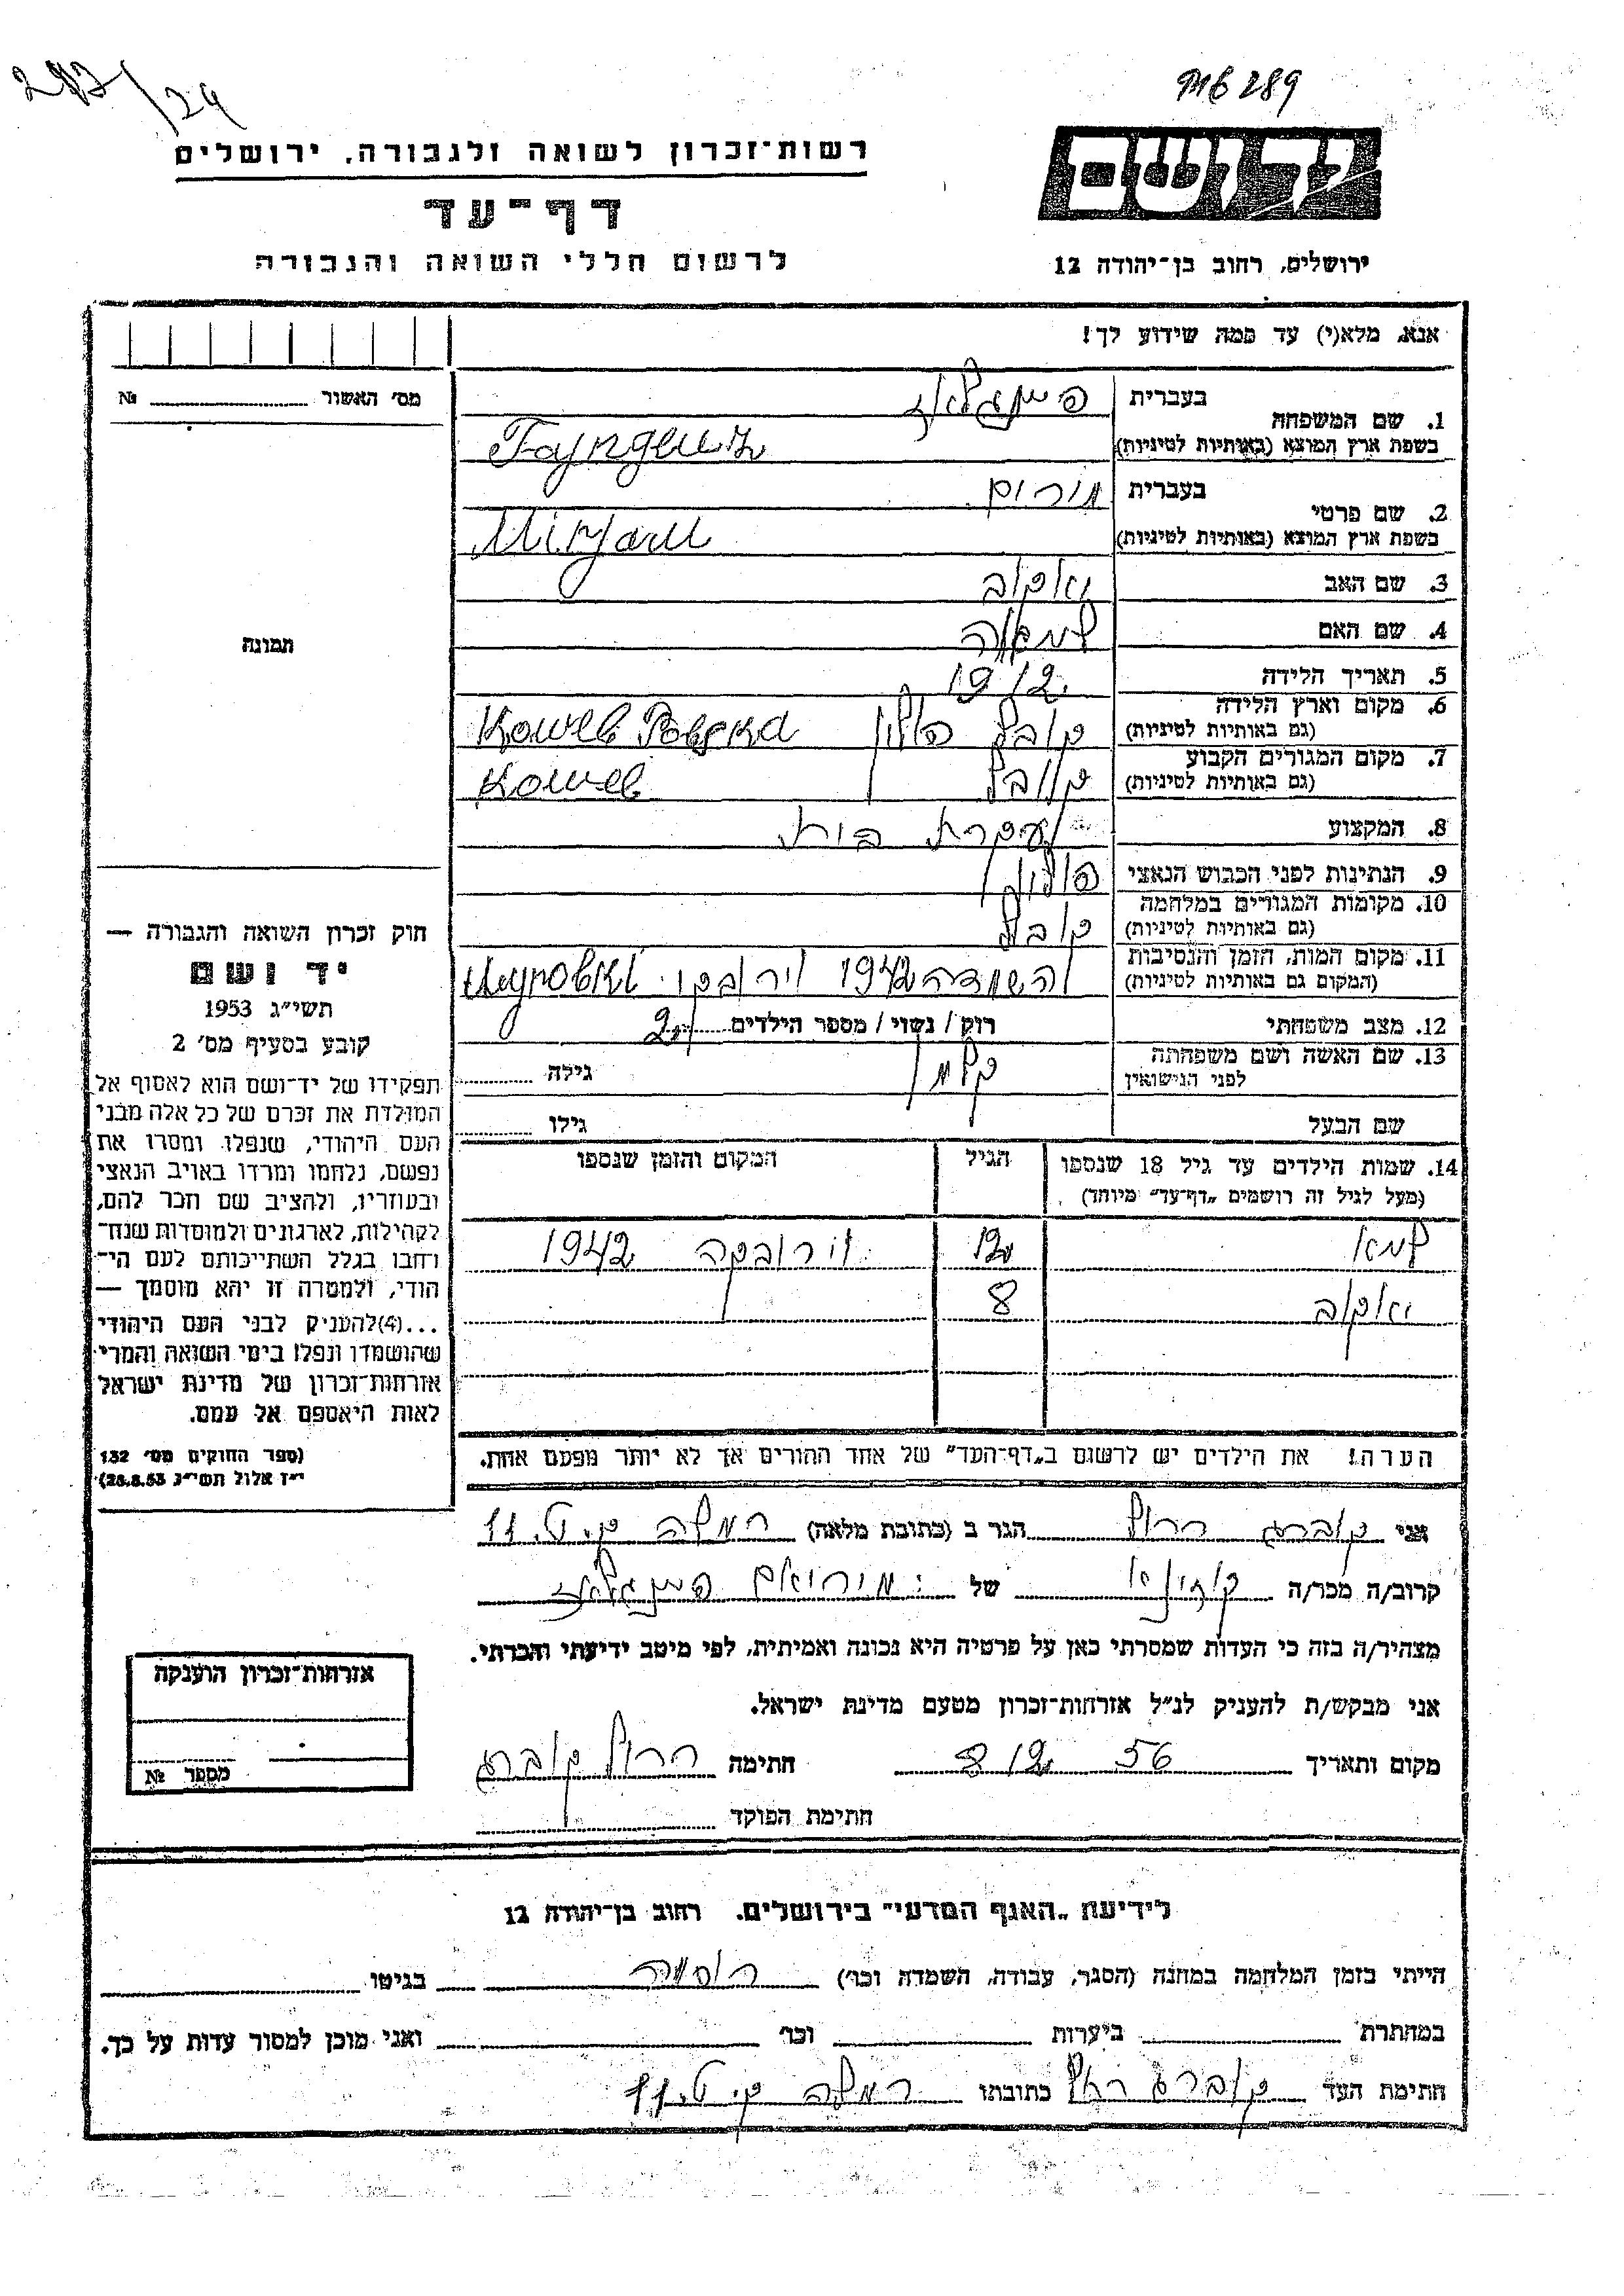 292/24
289
רשות־זכרון לשואה ולגבורה, ירושלים
יד ושם
דף־עד
לרשום חללי השואה והגבורה
ירושלים, רחוב בן־יהודה 12
אנא, מלא(י) עד כמה שידוע לך!
מס' האשור № 
1. שם המשפחה
בעברית
בשפת ארץ המוצא (באותיות לטיניות)
2. שם פרטי
בעברית מירים
בשפת ארץ המוצא (באותיות לטיניות)
3. שם האב יאקוב
4. שם האם
5. תאריך הלידה 1912
6. מקום וארץ הלידה קובל פולין Kowel Polska
(גם באותיות לטיניות)
7. מקום המגורים הקבוע קובל Kowel
(גם באותיות לטיניות)
8. המקצוע עקרת בית
9. הנתינות לפני הכבוש הנאצי פולין
10. מקומות המגורים במלחמה קובל
(גם באותיות לטיניות)
11. מקום המות, הזמן והנסיבות 1942
(המקום גם באותיות לטיניות)
12. מצב משפחתי רוק / נשוי / מספר הילדים 2
13. שם האשה ושם משפחתה גילה
לפני הנישואין
שם הבעל גילו
14. שמות הילדים עד גיל 18 שנספו הגיל המקום והזמן שנספו
(מעל לגיל זה רושמים „דף־עד" מיוחד)
12 1942
יאקוב 8
הערה! את הילדים יש לרשום ב„דף־העד" של אחד ההורים אך לא יותר מפעם אחת.
תמונה
חוק זכרון השואה והגבורה —
יד ושם
תשי״ג 1953
קובע בסעיף מס' 2
תפקידו של יד־ושם הוא לאסוף אל
המולדת את זכרם של כל אלה מבני
העם היהודי, שנפלו ומסרו את
נפשם, נלחמו ומרדו באויב הנאצי
ובעוזריו, ולהציב שם וזכר להם,
לקהילות, לארגונים ולמוסדות שנח־
רבו בגלל השתייכותם לעם הי־
הודי, ולמטרה זו יהא מוסמך —
...(4) להעניק לבני העם היהודי
שהושמדו ונפלו בימי השואה והמרי
אזרחות־זכרון של מדינת ישראל
לאות היאספם אל עמם.
(ספר החוקים מס' 132
י״ז אלול תשי״ג 28.8.53)
אני הגר ב (כתובת מלאה) רמלה ק.ט. 11
קרוב/ה מכר/ה של: מיריאם
מצהיר/ה בזה כי העדות שמסרתי כאן על פרטיה היא נכונה ואמיתית, לפי מיטב ידיעתי והכרתי.
אני מבקש/ת להעניק לנ״ל אזרחות־זכרון מטעם מדינת ישראל.
מקום ותאריך 8 12 56 חתימה
חתימת הפוקד
אזרחות־זכרון הוענקה
מספר №
לידיעת „האגף המדעי" בירושלים, רחוב בן־יהודה 12
הייתי בזמן המלחמה במחנה (הסגר, עבודה, השמדה וכו') רוסיה בגיטו
במחתרת ביערות וכו' ואני מוכן למסור עדות על כך.
חתימת העד כתובתו רמלה ק.ט. 11